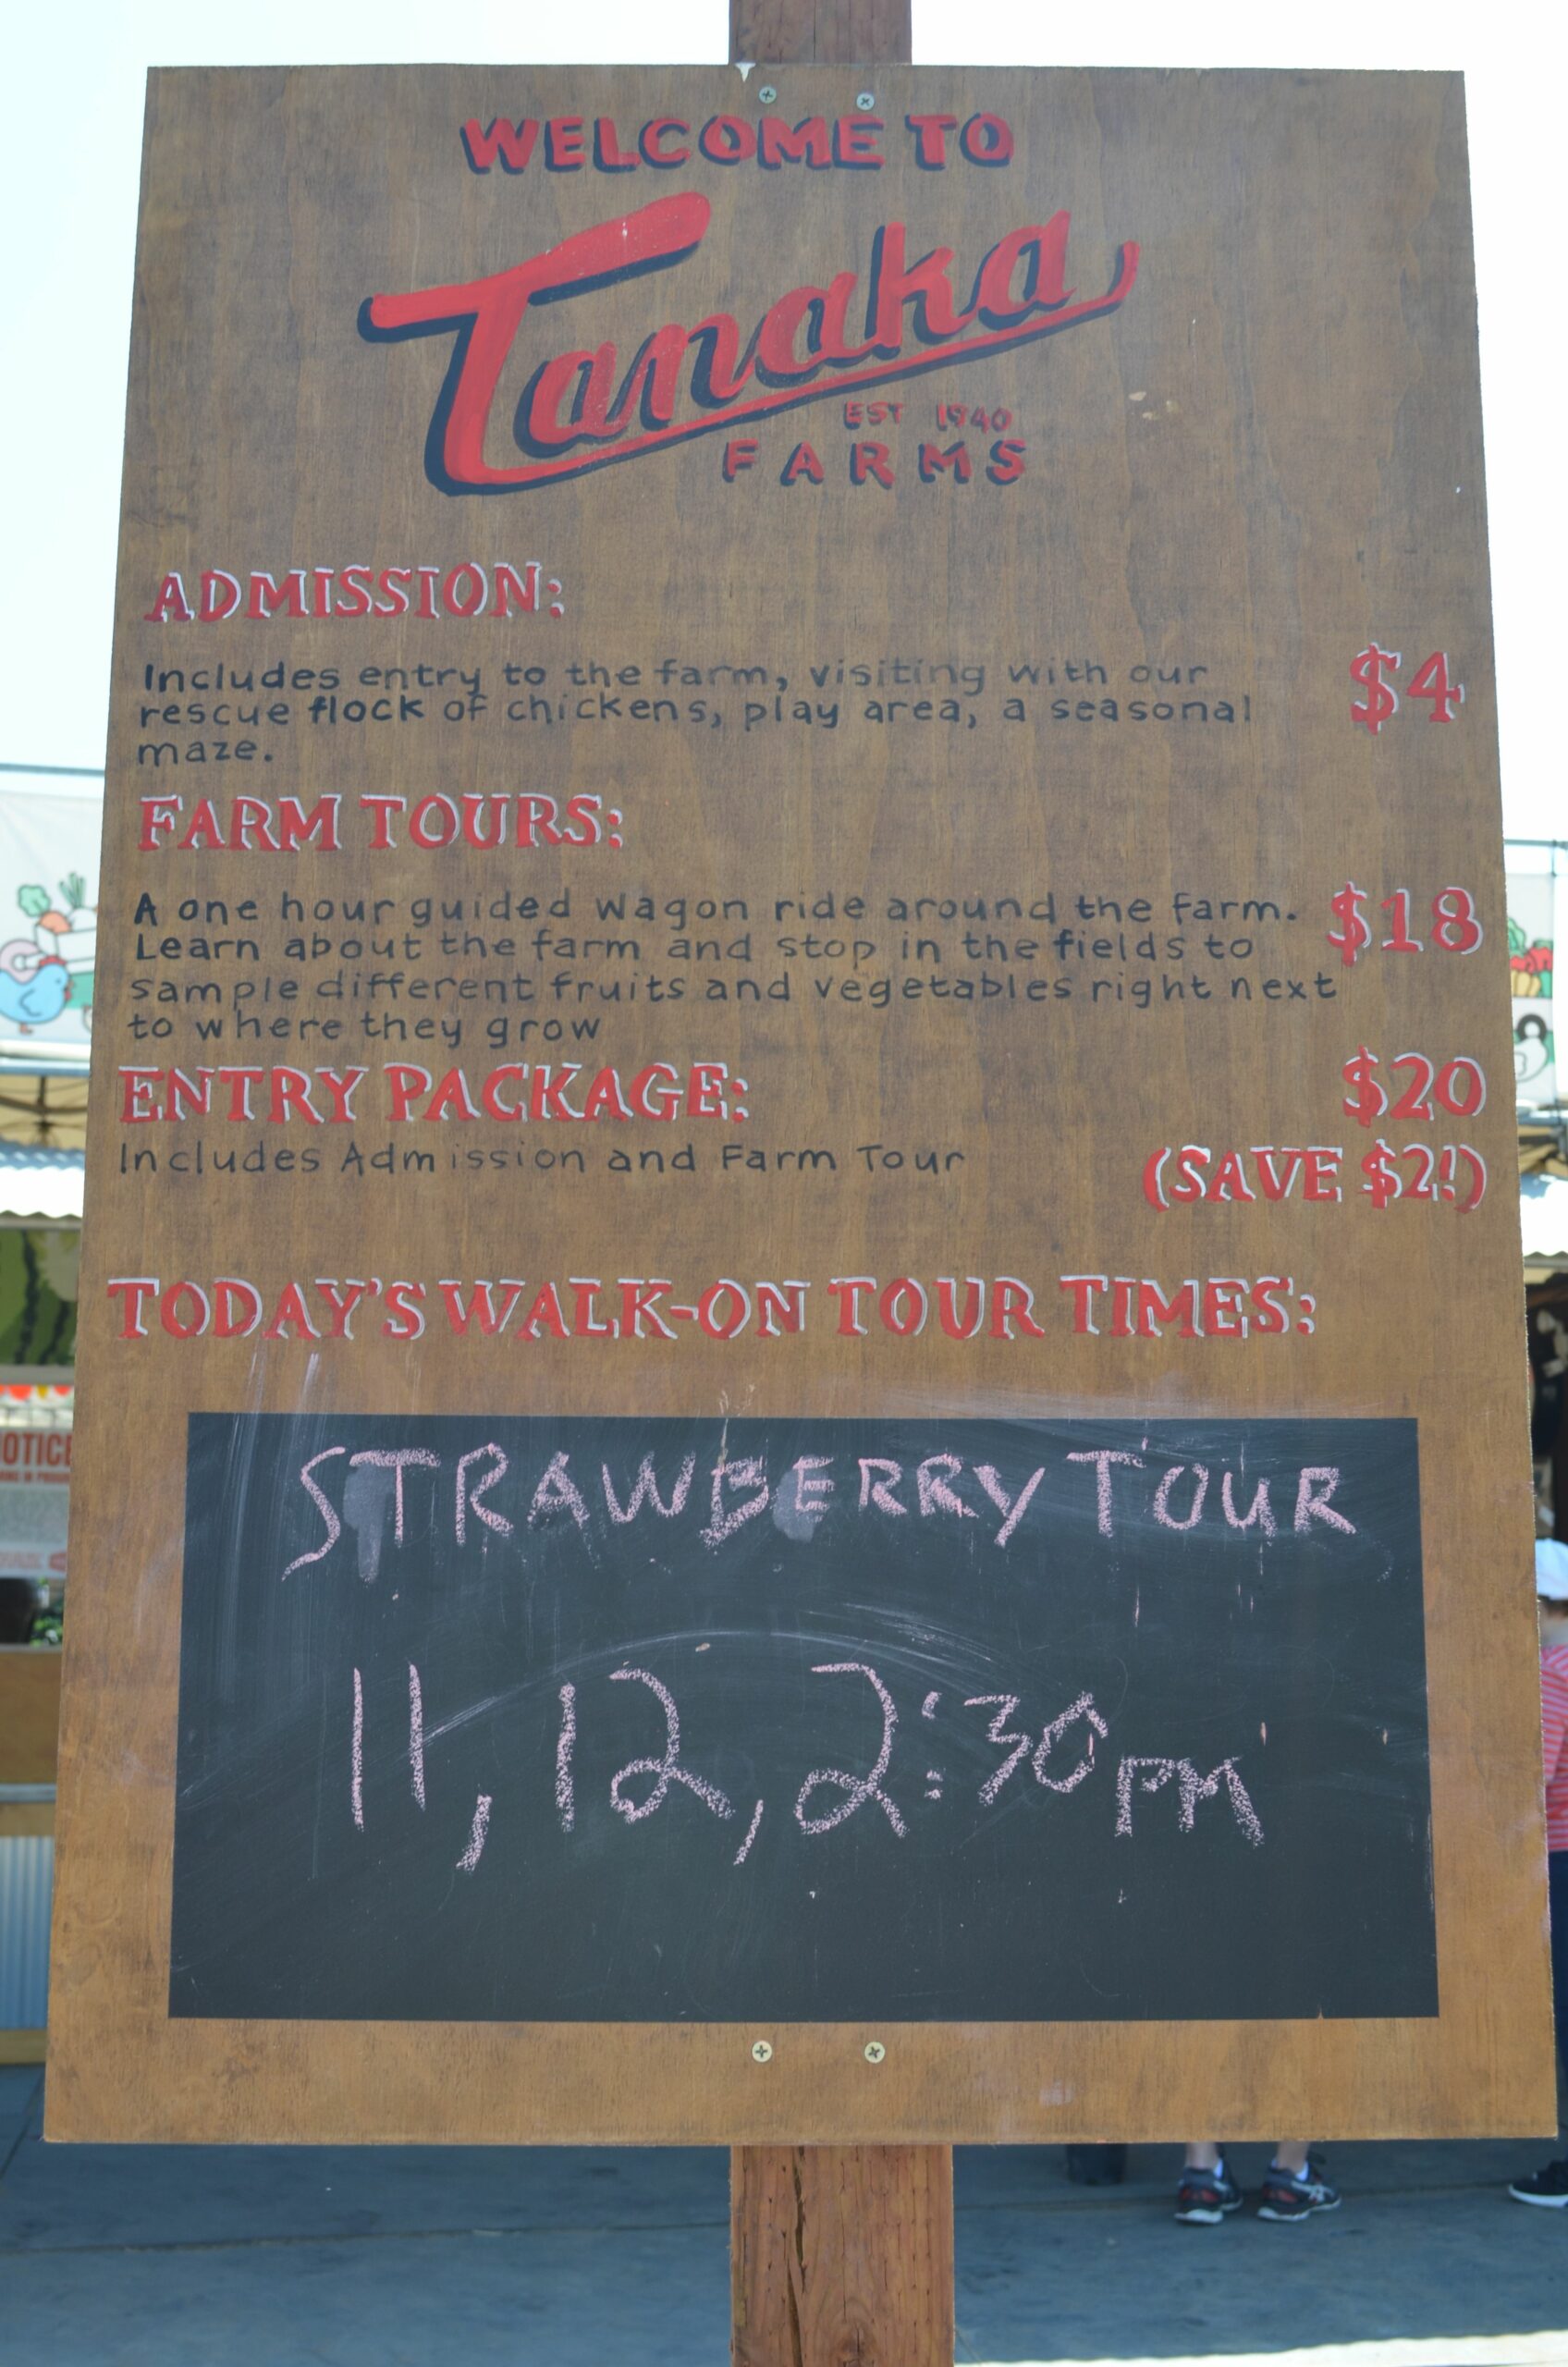 WELCOME TO
Tanaka
EST 1940
FARMS
ADMISSION:
Includes entry to the farm, visiting with our
rescue flock of chickens, play area, a seasonal
maze.
$4
FARM TOURS:
A one hour guided wagon ride around the farm.
Learn about the farm and stop in the fields to
sample different fruits and vegetables right next
to where they grow
$18
ENTRY PACKAGE:
$20
Includes Admission and Farm Tour
(SAVE $2!)
TODAY'S WALK-ON TOUR TIMES:
STRAWBERRY TOUR
11, 12, 2:30 PM